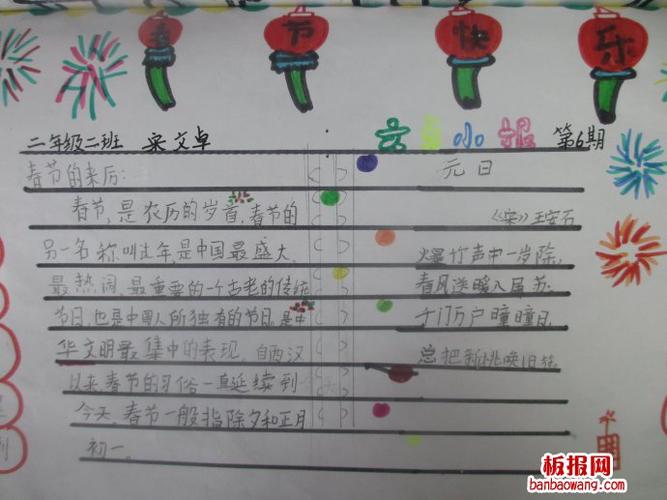 春节快乐
二年级二班 宋文卓
小报 第6期
春节的来历:
春节,是农历的岁首,春节的
另一名称叫过年,是中国最盛大、
最热闹、最重要的一个古老的传统
节日,也是中国人所独有的节日。是中
华文明最集中的表现。自西汉
以来春节的习俗一直延续到
今天。春节一般指除夕和正月
初一。
元日
《宋》王安石
爆竹声中一岁除,
春风送暖入屠苏.
千门万户曈曈日.
总把新桃换旧符
板报网
banbaowang.com